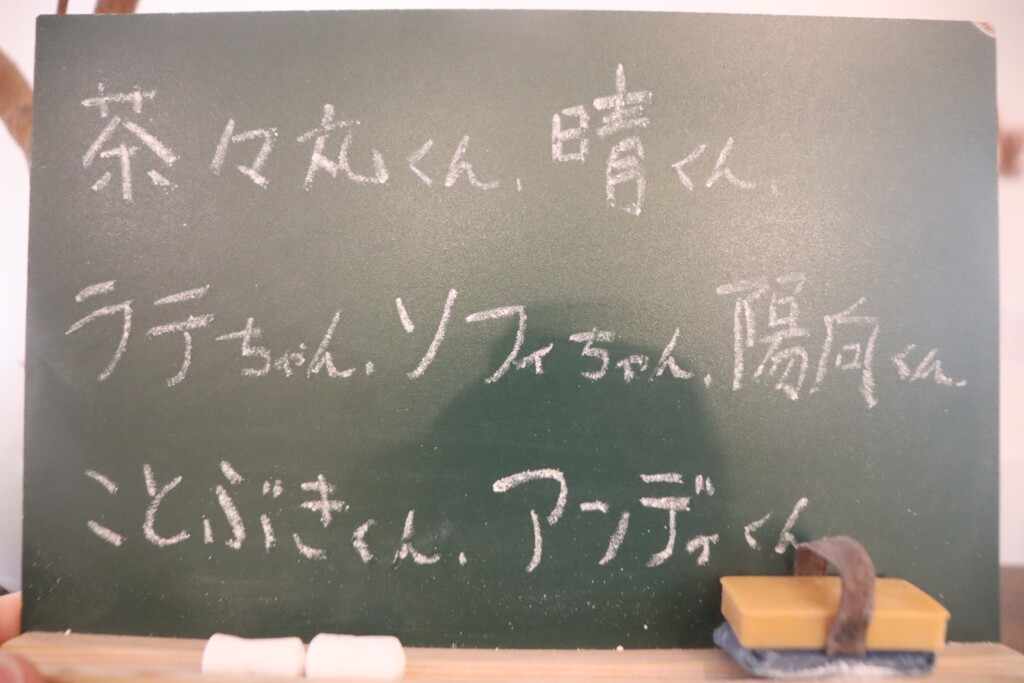 茶々丸くん、晴くん
ラテちゃん、ソフィちゃん、陽向くん
ことぶきくん、アンディくん